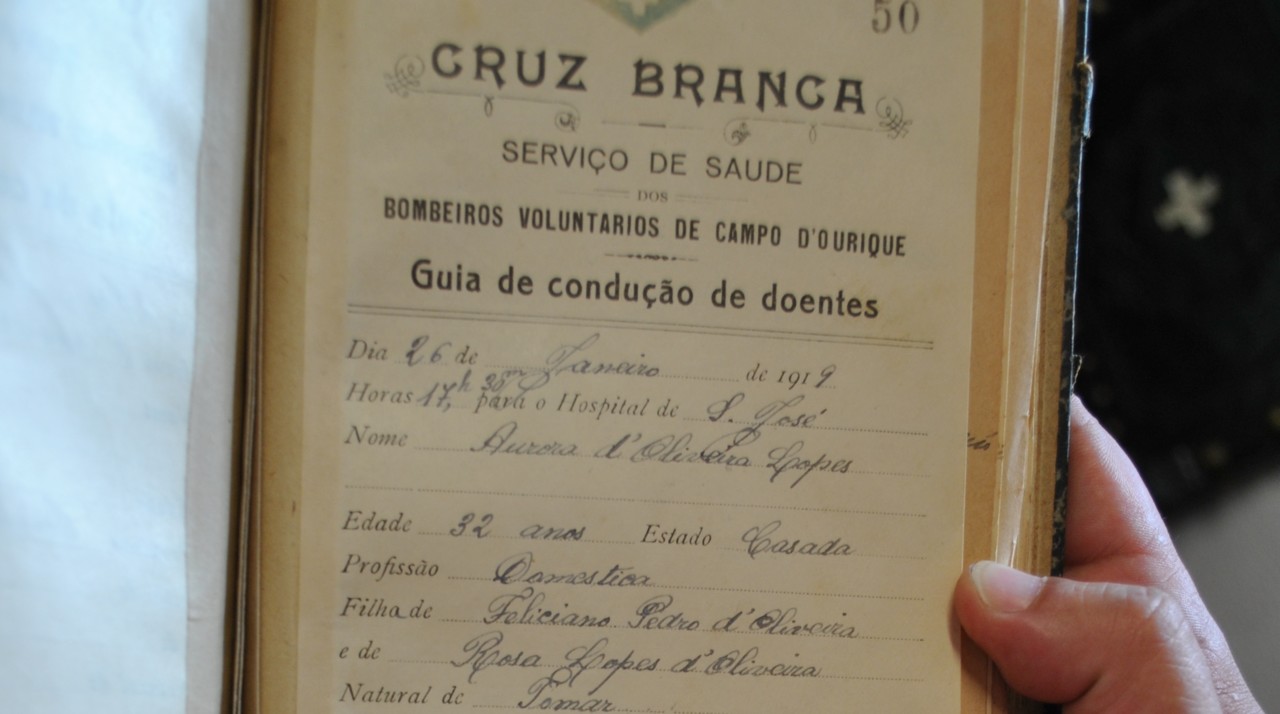 50
CRUZ BRANCA
SERVIÇO DE SAUDE
DOS
BOMBEIROS VOLUNTARIOS DE CAMPO D'OURIQUE
Guia de condução de doentes
Dia 26 de Janeiro de 1919
Horas 17,h 30m para o Hospital de S. José
Nome Aurora d'Oliveira Lopes
Edade 32 anos Estado Casada
Profissão Domestica
Filha de Feliciano Pedro d'Oliveira
e de Rosa Lopes d'Oliveira
Natural de Tomar